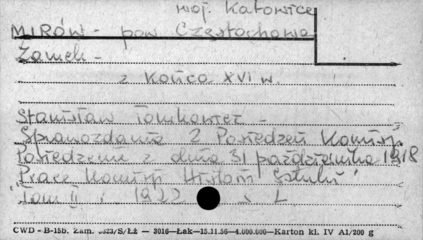 woj. Katowice
MIRÓW - pow. Częstochowa
Zamek -
z końca XVI w.
Stanisław Tomkowicz -
Sprawozdania z Posiedzeń Komisji
Posiedzenie z dnia 31 października 1918
"Prace Komisji Historii Sztuki"
Tom II 1922 s. L
CWD - B-15b. Zam. S/Łż — 3016—Łak—15.11.56—4.000.000—Karton kl. IV A1/200 g